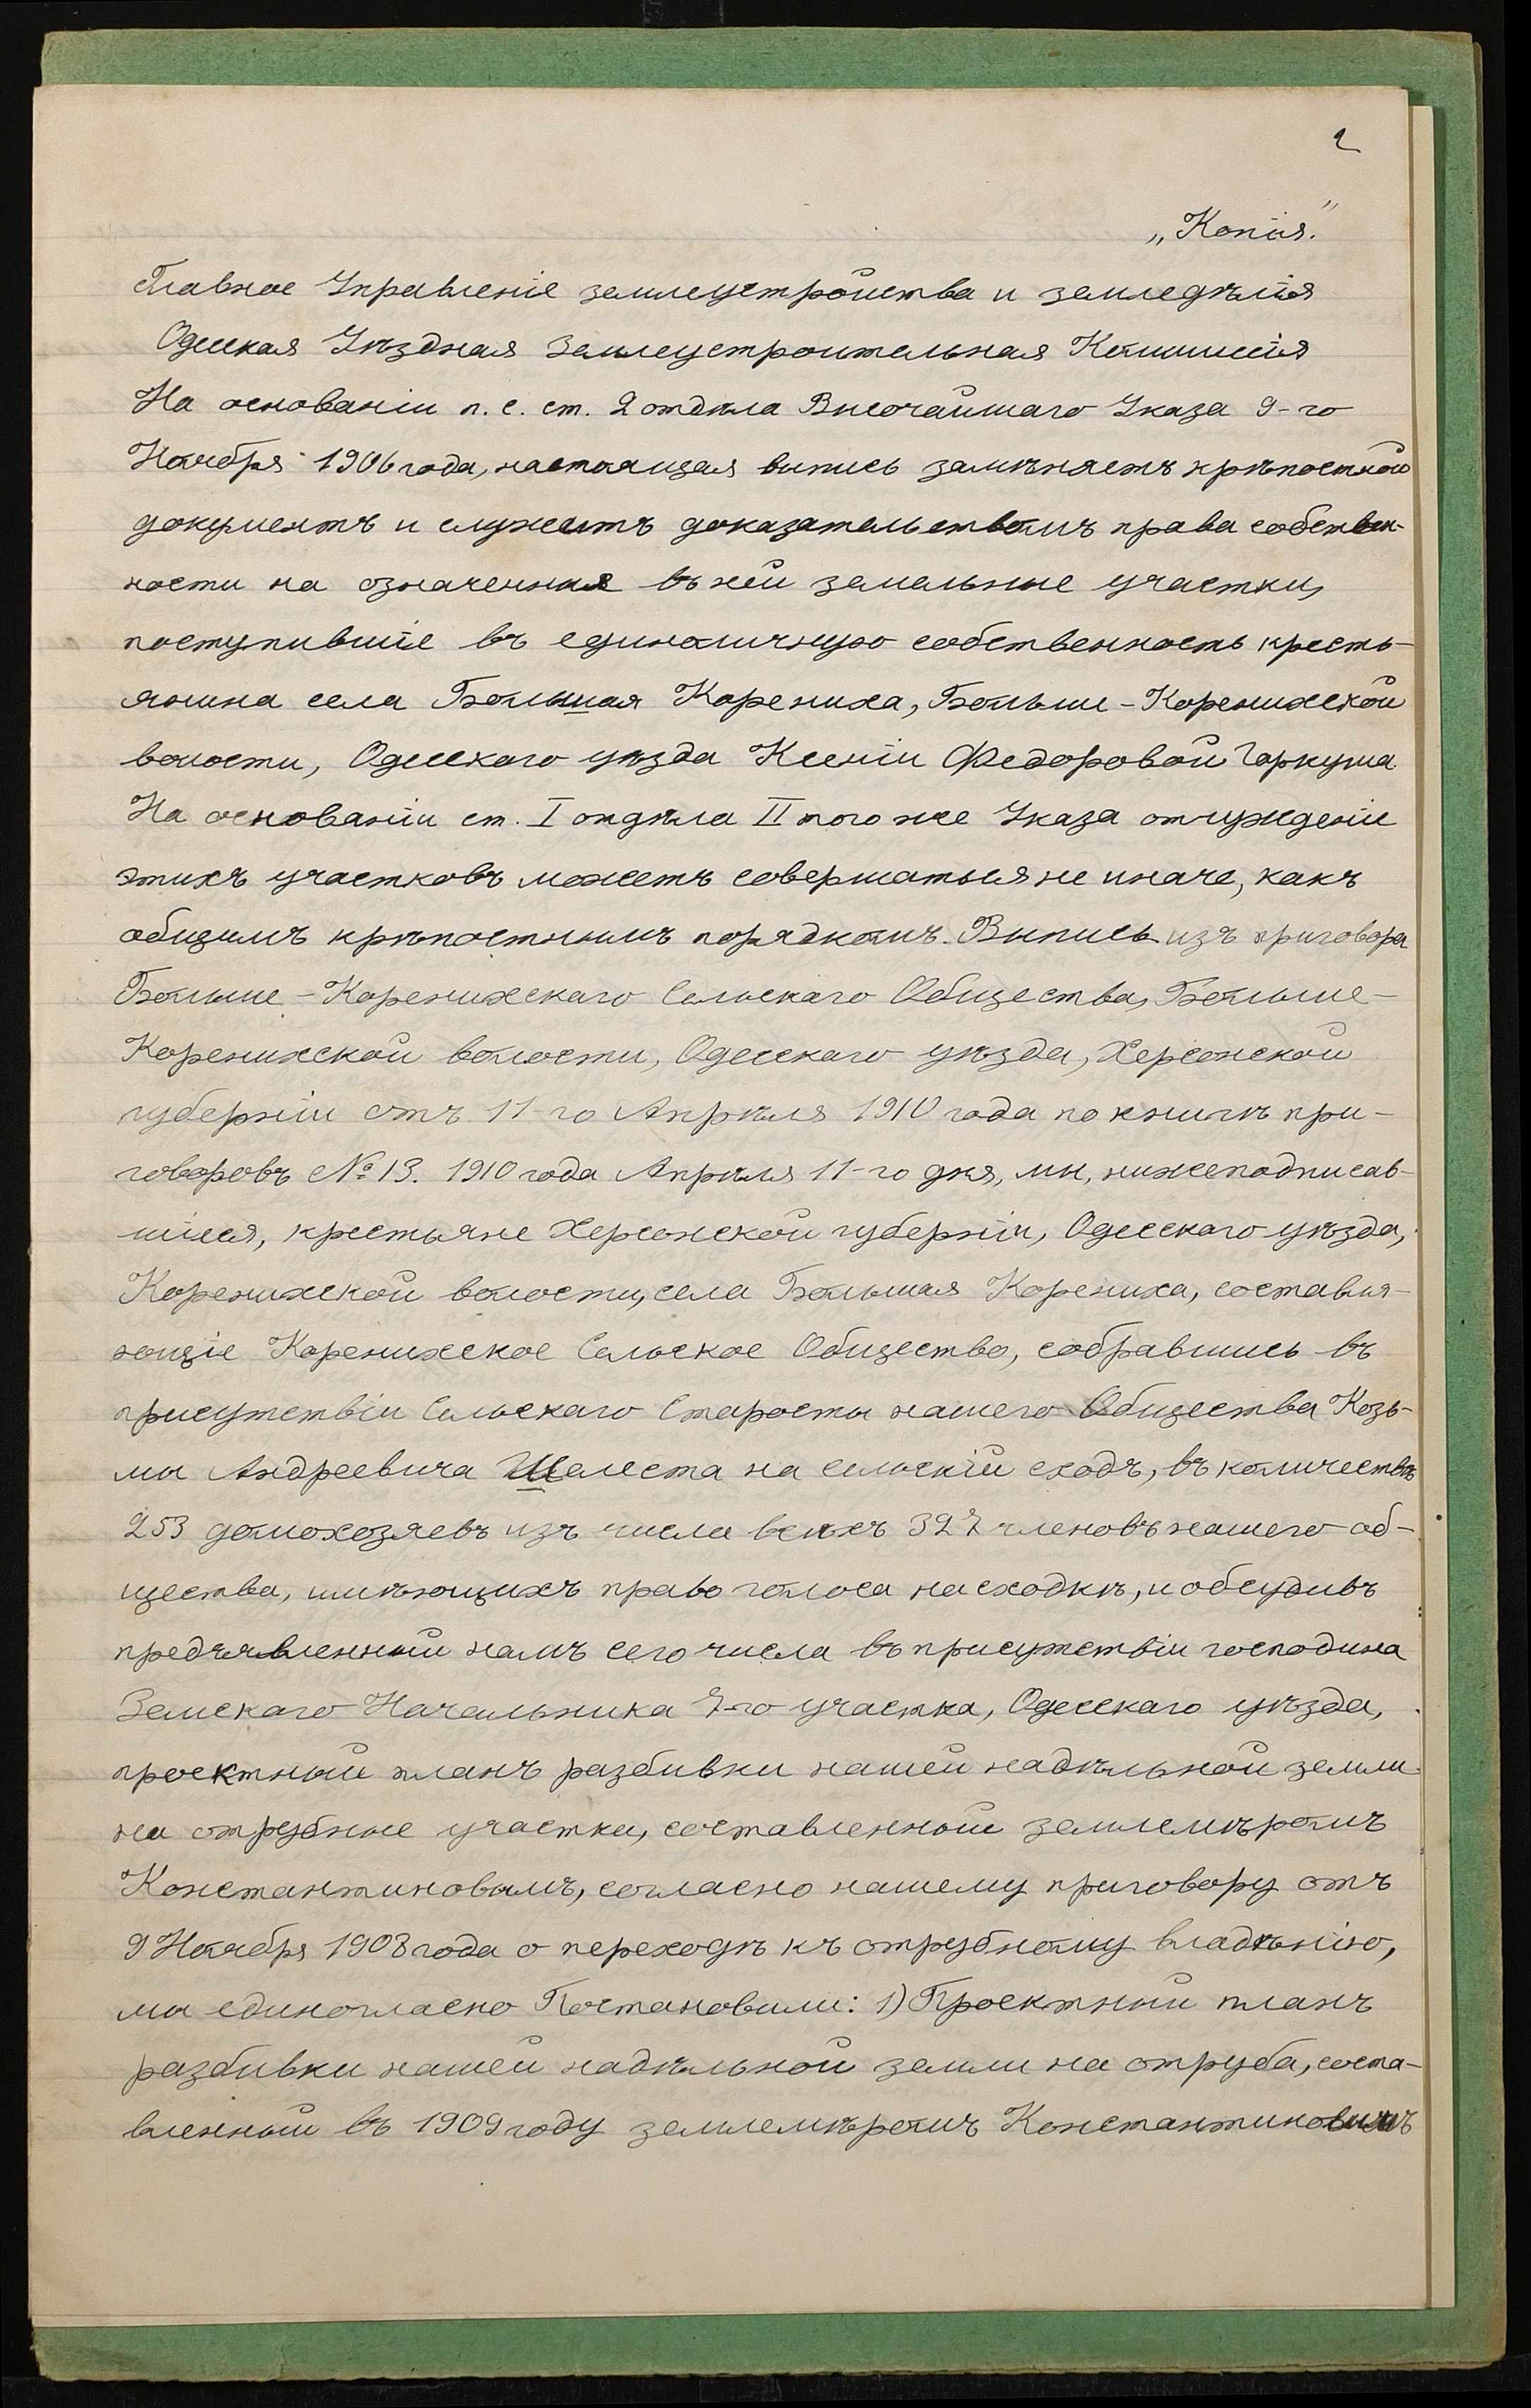 2
„Копія."
Главное Управленіе землеустройства и земледѣлія
Одесская Уѣздная Землеустроительная Коммиссія
На основаніи п. с. ст. 2 отдѣла Высочайшаго Указа 9-го
Ноября 1906 года, настоящая выпись замѣняетъ крѣпостной
документъ и служитъ доказательствомъ права собствен-
ности на означенныя въ ней земельные участки,
поступившіе въ единоличную собственность кресть-
янина села Большая Корениха, Больше-Коренихской
волости, Одесскаго уѣзда Ксеніи Федоровой Гаркуша
На основаніи ст. I отдѣла II того же Указа отчужденіе
этихъ участковъ можетъ совершаться не иначе, какъ
общимъ крѣпостнымъ порядкомъ. Выпись изъ приговора
Больше-Коренихскаго Сельскаго Общества, Больше-
Коренихской волости, Одесскаго уѣзда, Херсонской
губерніи отъ 11-го Апрѣля 1910 года по книгѣ при-
говоровъ № 13. 1910 года Апрѣля 11-го дня, мы, нижеподписав-
шіеся, крестьяне Херсонской губерніи, Одесскаго уѣзда,
Коренихской волости, села Большая Корениха, составля-
ющіе Коренихское Сельское Общество, собравшись въ
присутствіи Сельскаго Старосты нашего Общества Козь-
мы Андреевича Шелеста на сельскій сходъ, въ количествѣ
253 домохозяевъ изъ числа всѣхъ 327 членовъ нашего об-
щества, имѣющихъ право голоса на сходкѣ, и обсудивъ
предъявленный намъ сего числа въ присутствіи господина
Земскаго Начальника 7-го участка, Одесскаго уѣзда,
проектный планъ разбивки нашей надѣльной земли
на отрубные участки, составленный землемѣромъ
Константиновымъ, согласно нашему приговору отъ
9 Ноября 1908 года о переходѣ къ отрубному владѣнію,
мы единогласно Постановили: 1) Проектный планъ
разбивки нашей надѣльной земли на отруба, соста-
вленный въ 1909 году землемѣромъ Константиновымъ